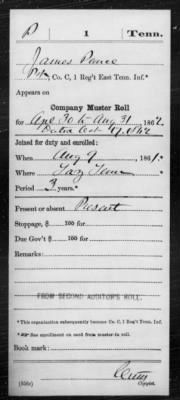 P 1 Tenn.
James Pance
Pvt., Co. C, 1 Reg't East Tenn. Inf.*
Appears on
Company Muster Roll
for Apl 30 to Aug 31, 1862.
Dated Oct 17, 1862
Joined for duty and enrolled:
When Aug 9, 1861.
Where Taz Tenn
Period 3 years.*
Present or absent Present
Stoppage, $ 100 for
Due Gov't $ 100 for
Remarks:
FROM SECOND AUDITOR'S ROLL.
*This organization subsequently became Co. C, 1 Reg't Tenn. Inf.
*See enrollment on card from muster-in roll.
Book mark:
(358c) Copyist.